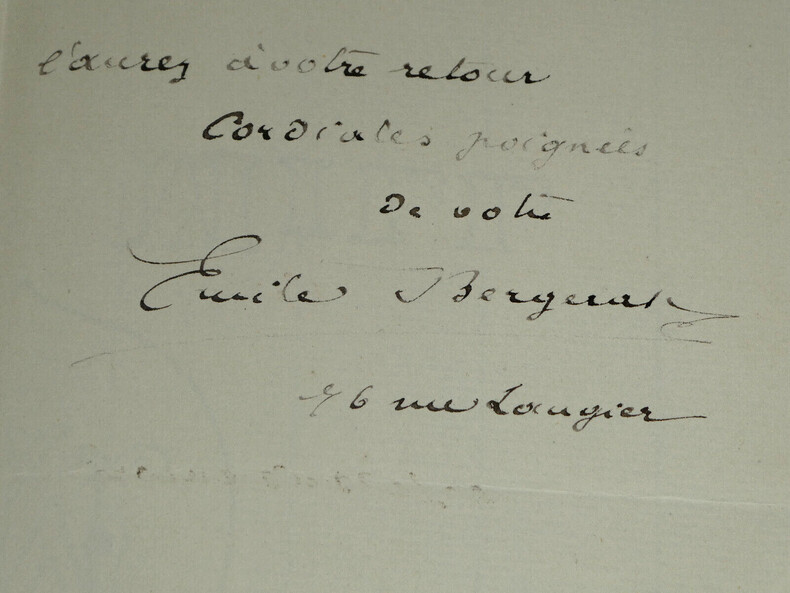 l'aurez à votre retour
Cordiales poignées
de votre
Emile Bergerat
rue Laugier